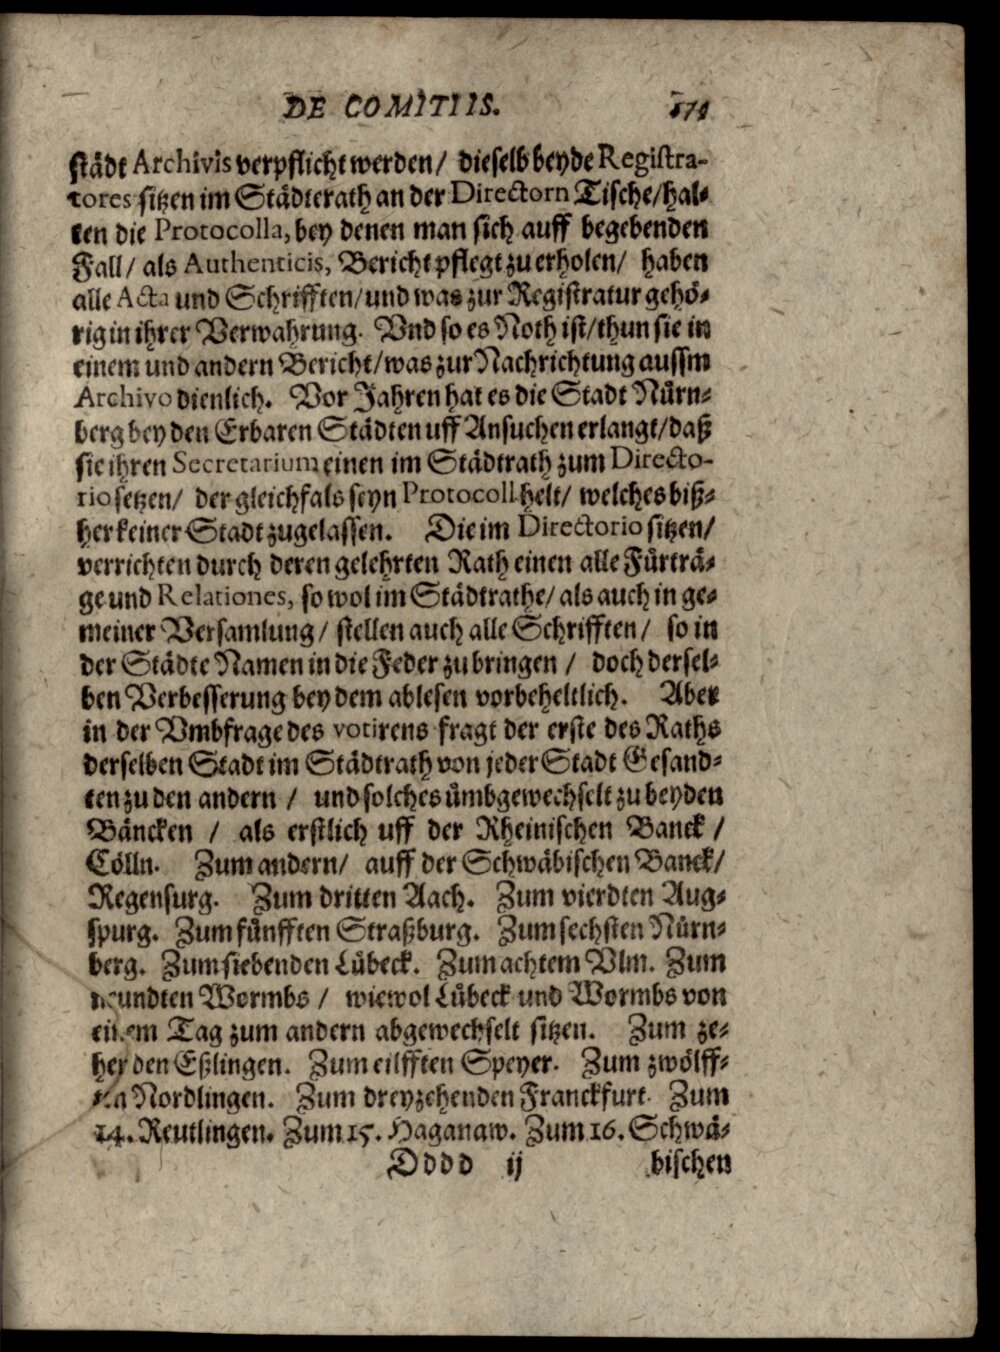 DE COMITIIS. 579
städt Archivis verpflicht werden/ dieselb beyde Registra-
tores sitzen im Städterath an der Directorn Tische/hal-
ten die Protocolla, bey denen man sich auff begebenden
Fall/ als Authenticis, Bericht pflegt zu erholen/ haben
alle Acta und Schrifften/und was zur Registratur gehö-
rig in ihrer Verwahrung. Vnd so es Noth ist/thun sie in
einem und andern Bericht/was zur Nachrichtung aussm
Archivo dienlich. Vor Jahren hat es die Stadt Nürn-
berg bey den Erbaren Städten uff Ansuchen erlangt/daß
sie ihren Secretarium einen im Städtrath zum Directo-
rio setzen/ der gleichfals seyn Protocoll helt/ welches biß-
her keiner Stadt zugelassen. Die im Directorio sitzen/
verrichten durch deren gelehrten Rath einen alle Fürträ-
ge und Relationes, so wol im Städtrathe/ als auch in ge-
meiner Versamlung/ stellen auch alle Schrifften/ so in
der Städte Namen in die Feder zu bringen / doch dersel-
ben Verbesserung bey dem ablesen vorbeheltlich. Aber
in der Vmbfrage des votirens fragt der erste des Raths
derselben Stadt im Städtrath von jeder Stadt Gesand-
ten zu den andern / und solches ümbgewechselt zu beyden
Bäncken / als erstlich uff der Rheinischen Banck /
Cölln. Zum andern/ auff der Schwäbischen Banck/
Regensurg. Zum dritten Aach. Zum vierdten Aug-
spurg. Zum fünfften Straßburg. Zum sechsten Nürn-
berg. Zum siebenden Lübeck. Zum achtem Vlm. Zum
neundten Wormbs / wiewol Lübeck und Wormbs von
einem Tag zum andern abgewechselt sitzen. Zum ze-
henden Eßlingen. Zum eilfften Speyer. Zum zwölff-
ten Nordlingen. Zum dreyzehenden Franckfurt. Zum
14. Reutlingen. Zum 15. Haganaw. Zum 16. Schwä-
Dddd ij bischen